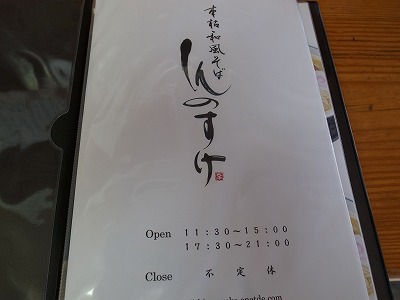 本格和風そば
しんのすけ
Open 11:30～15:00
17:30～21:00
Close 不定休